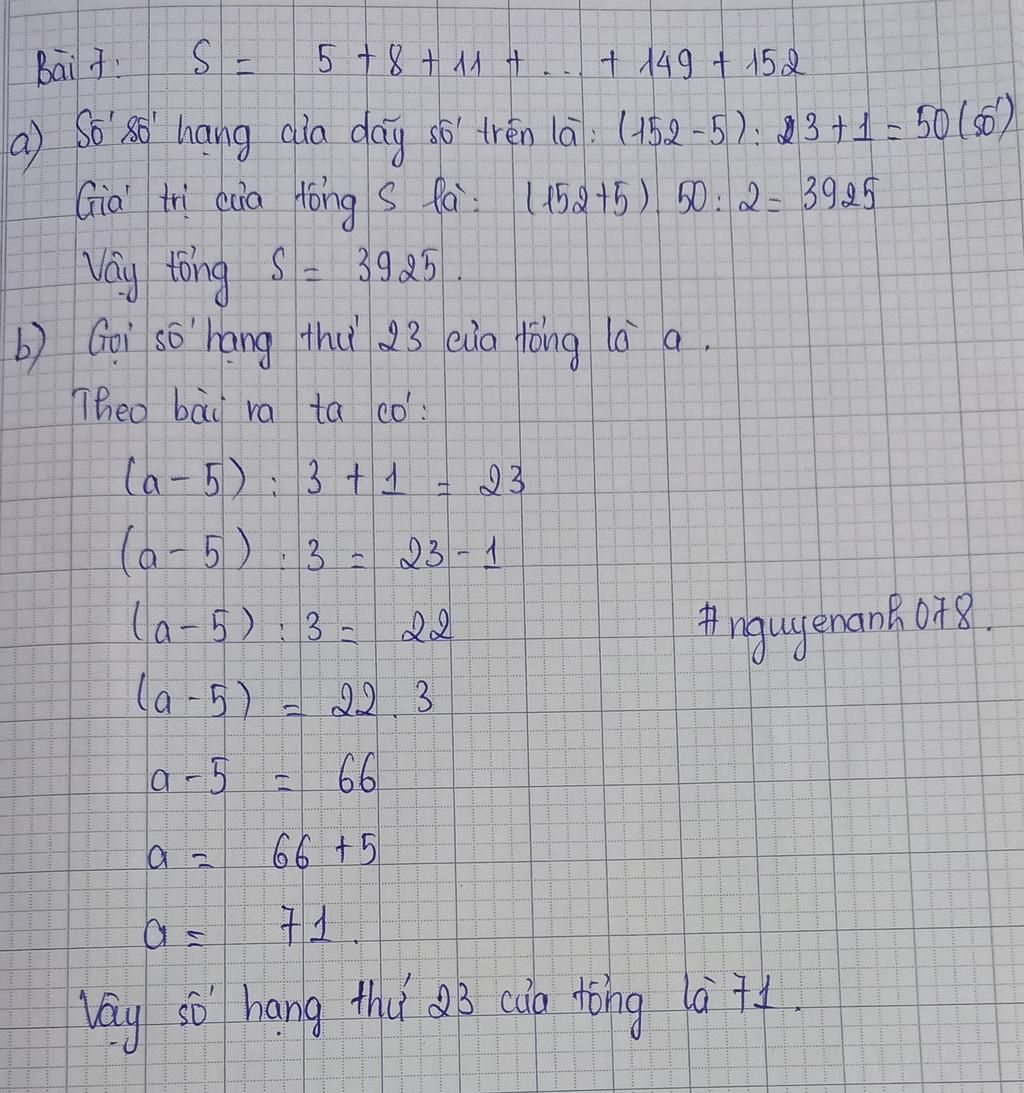 Bài 7: S = 5 + 8 + 11 + ... + 149 + 152
a) Số số hạng của dãy số trên là: (152 - 5) : 3 + 1 = 50 (số)
Giá trị của tổng S là: (152 + 5) 50 : 2 = 3925
Vậy tổng S = 3925.
b) Gọi số hạng thứ 23 của tổng là a.
Theo bài ra ta có:
(a - 5) : 3 + 1 = 23
(a - 5) : 3 = 23 - 1
(a - 5) : 3 = 22
#nguyenanh078.
(a - 5) = 22 . 3
a - 5 = 66
a = 66 + 5
a = 71.
Vậy số hạng thứ 23 của tổng là 71.